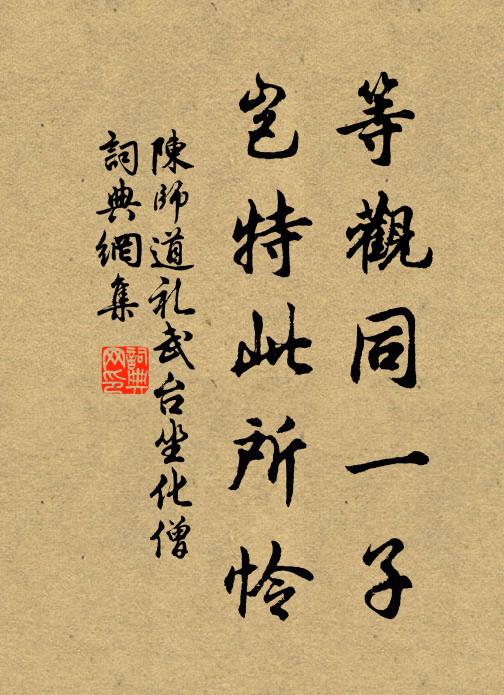 等觀同一子
豈特此所怜
陳師道礼武台坐化僧
詞典網集
詞典
网印